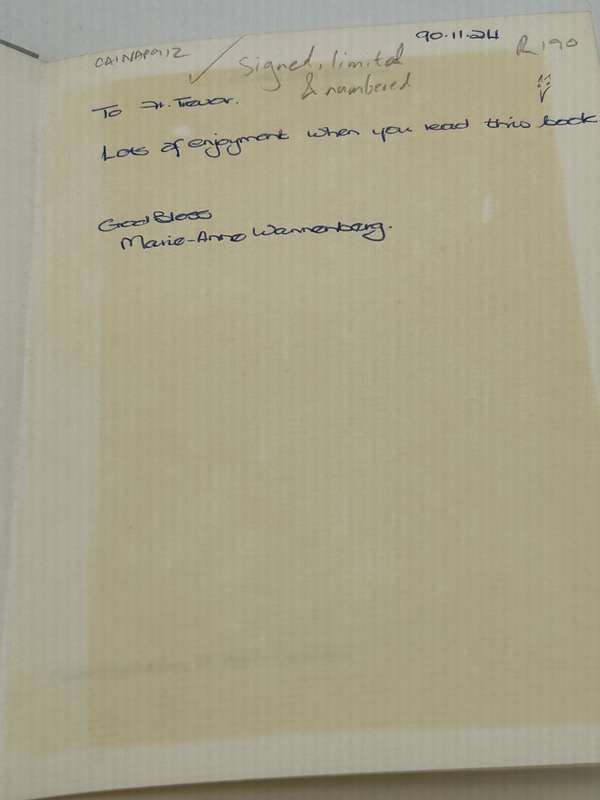 CAINAP912
90.11.24
R190
Signed, limited
& numbered
To Fr. Trevor.
Lots of enjoyment when you read this book
God Bless
Marie-Anne Wannenberg.